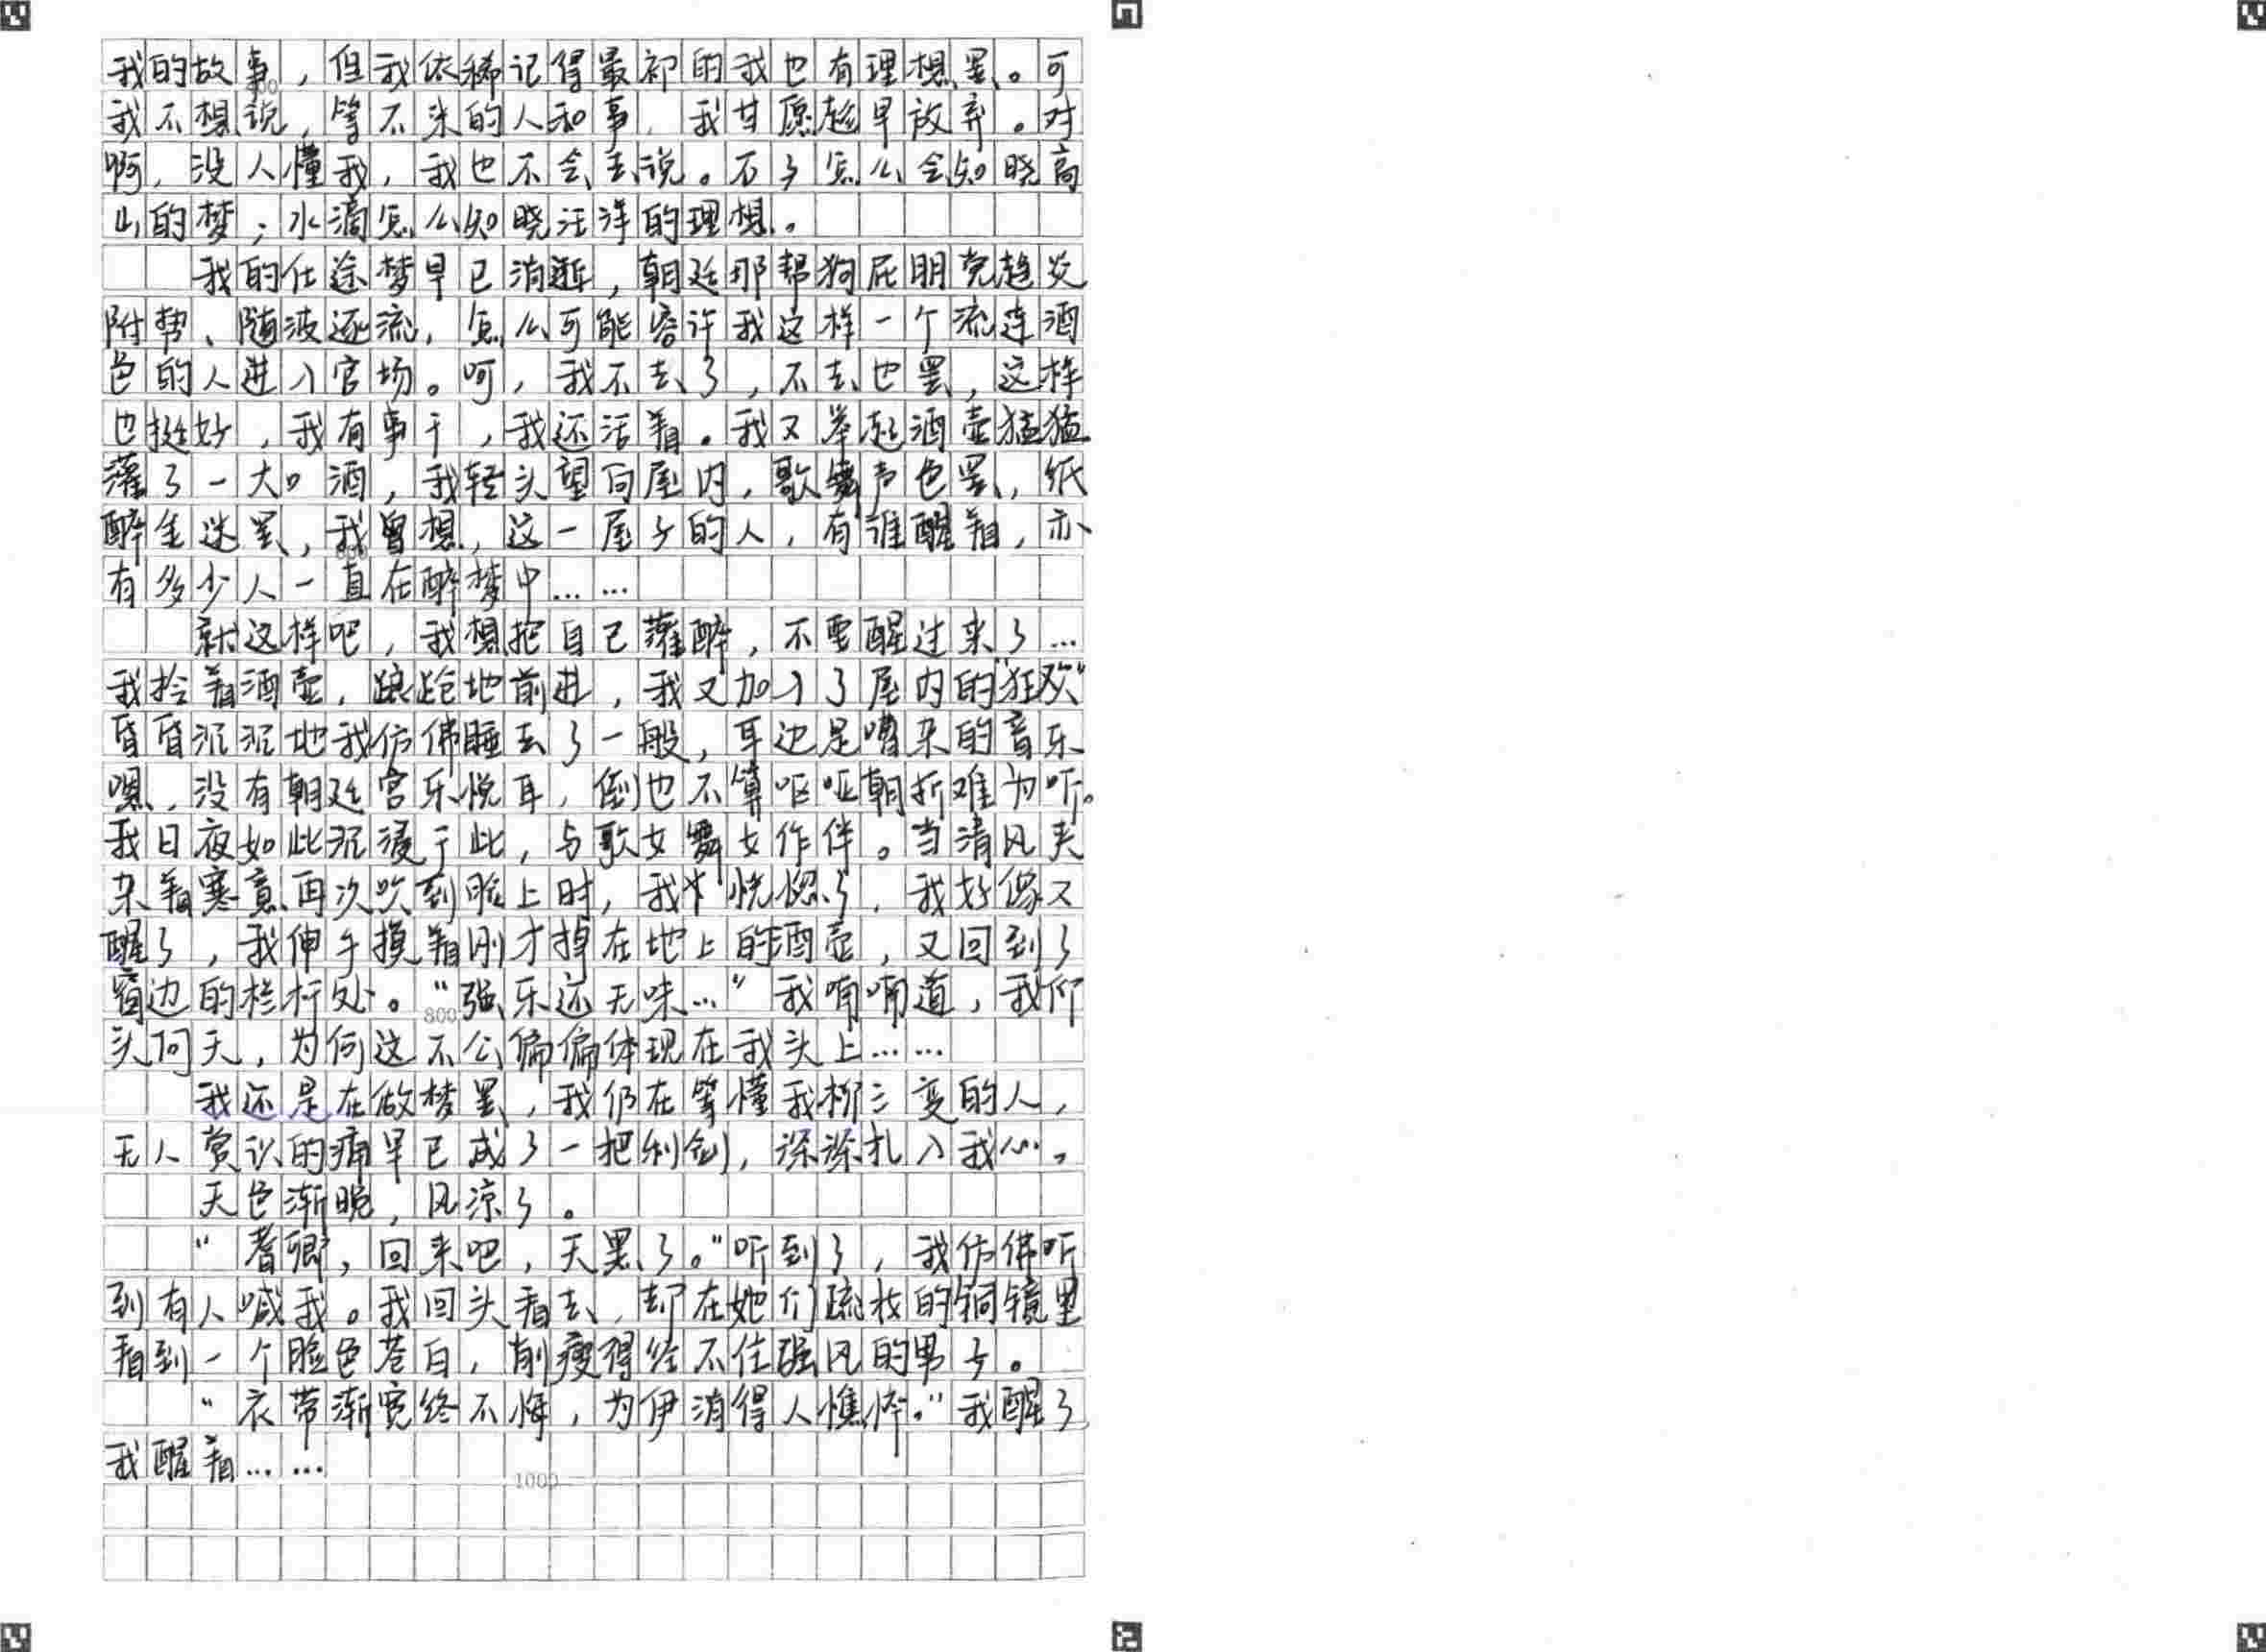 我的故事，但我依稀记得最初的我也有理想罢。可
我不想说，等不来的人和事，我甘愿趁早放弃。对
啊，没人懂我，我也不会去说。石子怎么会知晓高
山的梦；水滴怎么知晓汪洋的理想。
我的仕途梦早已消逝，朝廷那帮狗屁朋党趋炎
附势、随波逐流，怎么可能容许我这样一个流连酒
色的人进入官场。呵，我不去了，不去也罢，这样
也挺好，我有事干，我还活着。我又举起酒壶猛猛
灌了一大口酒，我转头望向屋内，歌舞声色罢，纸
醉金迷罢，我曾想，这一屋子的人，有谁醒着，亦
600
有多少人一直在醉梦中……
就这样吧，我想把自己灌醉，不要醒过来了…
我拎着酒壶，踉跄地前进，我又加入了屋内的“狂欢”
昏昏沉沉地我仿佛睡去了一般，耳边是嘈杂的音乐
嗯，没有朝廷宫乐悦耳，倒也不算呕哑嘲哳难为听。
我日夜如此沉浸于此，与歌女舞女作伴。当清风夹
杂着寒意再次吹到脸上时，我才恍惚了，我好像又
醒了，我伸手摸着刚才掉在地上的酒壶，又回到了
窗边的栏杆处。“强乐还无味…”我喃喃道，我仰
800
头问天，为何这不公偏偏体现在我头上……
我还是在做梦罢，我仍在等懂我柳三变的人，
无人赏识的痛早已成了一把利剑，深深扎入我心。
天色渐晚，风凉了。
“耆卿，回来吧，天黑了。”听到了，我仿佛听
到有人喊我。我回头看去，却在她们疏妆的铜镜里
看到一个脸色苍白，削瘦得经不住强风的男子。
“衣带渐宽终不悔，为伊消得人憔悴。”我醒了，
我醒着……
1000